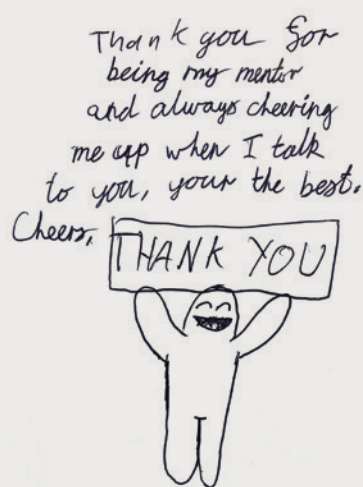 Thank you for
being my mentor
and always cheering
me up when I talk
to you, your the best.
Cheers,
THANK YOU